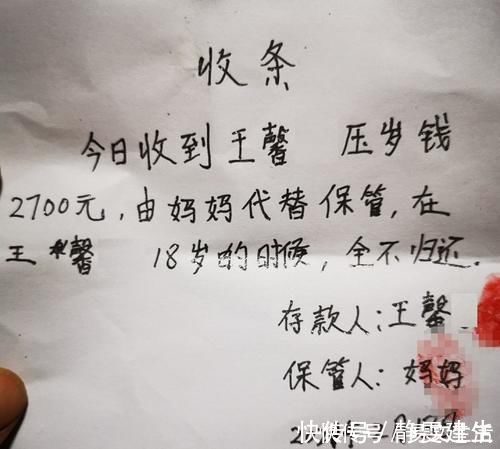 收条
今日收到王馨 压岁钱
2700元,由妈妈代替保管,在
王馨 18岁的时候,全不归还.
存款人:王馨
保管人:妈妈
快传号/静雯建生